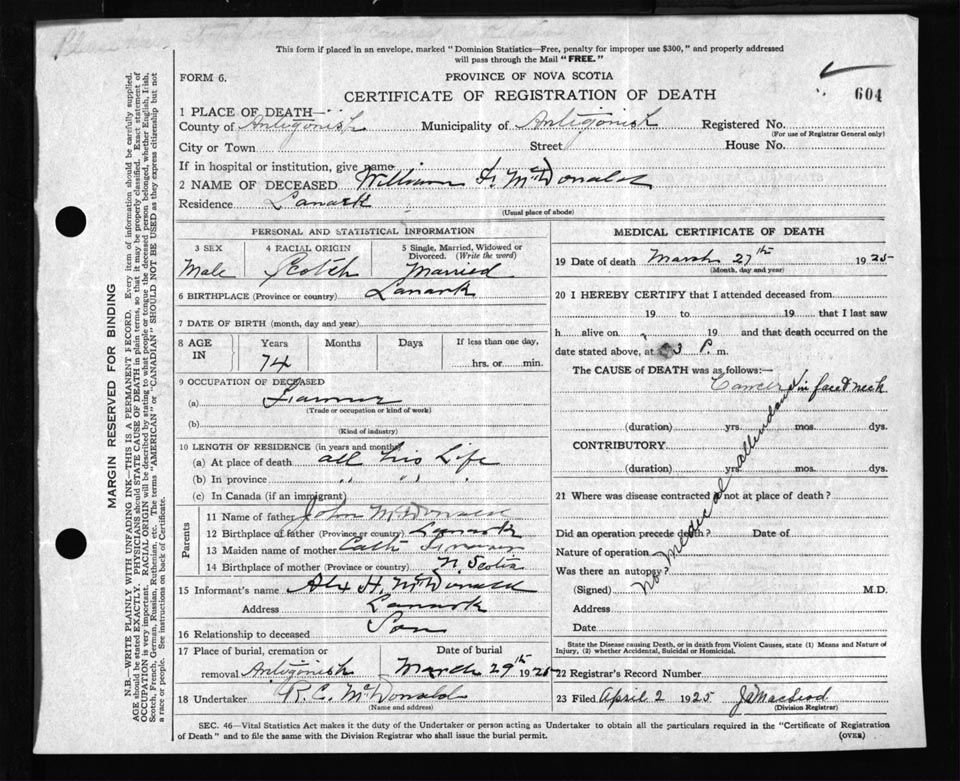 This form if placed in an envelope, marked "Dominion Statistics—Free, penalty for improper use $300," and properly addressed
will pass through the Mail "FREE."
FORM 6.
PROVINCE OF NOVA SCOTIA
CERTIFICATE OF REGISTRATION OF DEATH
604
1 PLACE OF DEATH—
County of Antigonish Municipality of Antigonish Registered No.
(For use of Registrar General only)
City or Town Street House No.
If in hospital or institution, give name
2 NAME OF DECEASED William F. McDonald
Residence Lanark
(Usual place of abode)
PERSONAL AND STATISTICAL INFORMATION
3 SEX 4 RACIAL ORIGIN 5 Single, Married, Widowed or
Divorced. (Write the word)
Male Scotch Married
6 BIRTHPLACE (Province or country) Lanark
7 DATE OF BIRTH (month, day and year)
8 AGE IN Years Months Days If less than one day,
74 hrs. or min.
9 OCCUPATION OF DECEASED
(a) Farmer
(Trade or occupation or kind of work)
(b)
(Kind of industry)
10 LENGTH OF RESIDENCE (in years and months)
(a) At place of death all his Life
(b) In province " " "
(c) In Canada (if an immigrant)
Parents
11 Name of father John McDonald
12 Birthplace of father (Province or country) Lanark
13 Maiden name of mother Cath
14 Birthplace of mother (Province or country) N. Scotia
15 Informant's name Alex H. McDonald
Address Lanark
16 Relationship to deceased Son
17 Place of burial, cremation or Date of burial
removal Antigonish March 29th 1925
18 Undertaker R. C. McDonald
(Name and address)
MEDICAL CERTIFICATE OF DEATH
19 Date of death March 27th 1925
(Month, day and year)
20 I HEREBY CERTIFY that I attended deceased from
19 to 19 that I last saw
h alive on 19 and that death occurred on
date stated above, at 3 P. m.
The CAUSE of DEATH was as follows:—
Cancer in face & neck
(duration) yrs. mos. dys.
CONTRIBUTORY
(duration) yrs. mos. dys.
21 Where was disease contracted if not at place of death?
Did an operation precede death? Date of
Nature of operation
Was there an autopsy
No Medical attendant
(Signed) M.D.
Address
Date
State the Disease causing Death, or in death from Violent Causes, state (1) Means and Nature of
Injury, (2) whether Accidental, Suicidal or Homicidal.
22 Registrar's Record Number
23 Filed April 2 1925 J A Macleod
(Division Registrar)
SEC. 46—Vital Statistics Act makes it the duty of the Undertaker or person acting as Undertaker to obtain all the particulars required in the "Certificate of Registration
of Death" and to file the same with the Division Registrar who shall issue the burial permit.
(OVER)
MARGIN RESERVED FOR BINDING
N.B.—WRITE PLAINLY WITH UNFADING INK—THIS IS A PERMANENT RECORD. Every item of information should be carefully supplied.
AGE should be stated EXACTLY. PHYSICIANS should STATE CAUSE OF DEATH in plain terms, so that it may be properly classified. Exact statement of
OCCUPATION is very important. RACIAL ORIGIN will be described by stating to what people or tongue the deceased person belonged, whether English, Irish,
Scotch, French, German, Russian, Ruthenian, etc. The terms "AMERICAN" or "CANADIAN" SHOULD NOT BE USED as they express citizenship but not
a race or people. See instructions on back of Certificate.